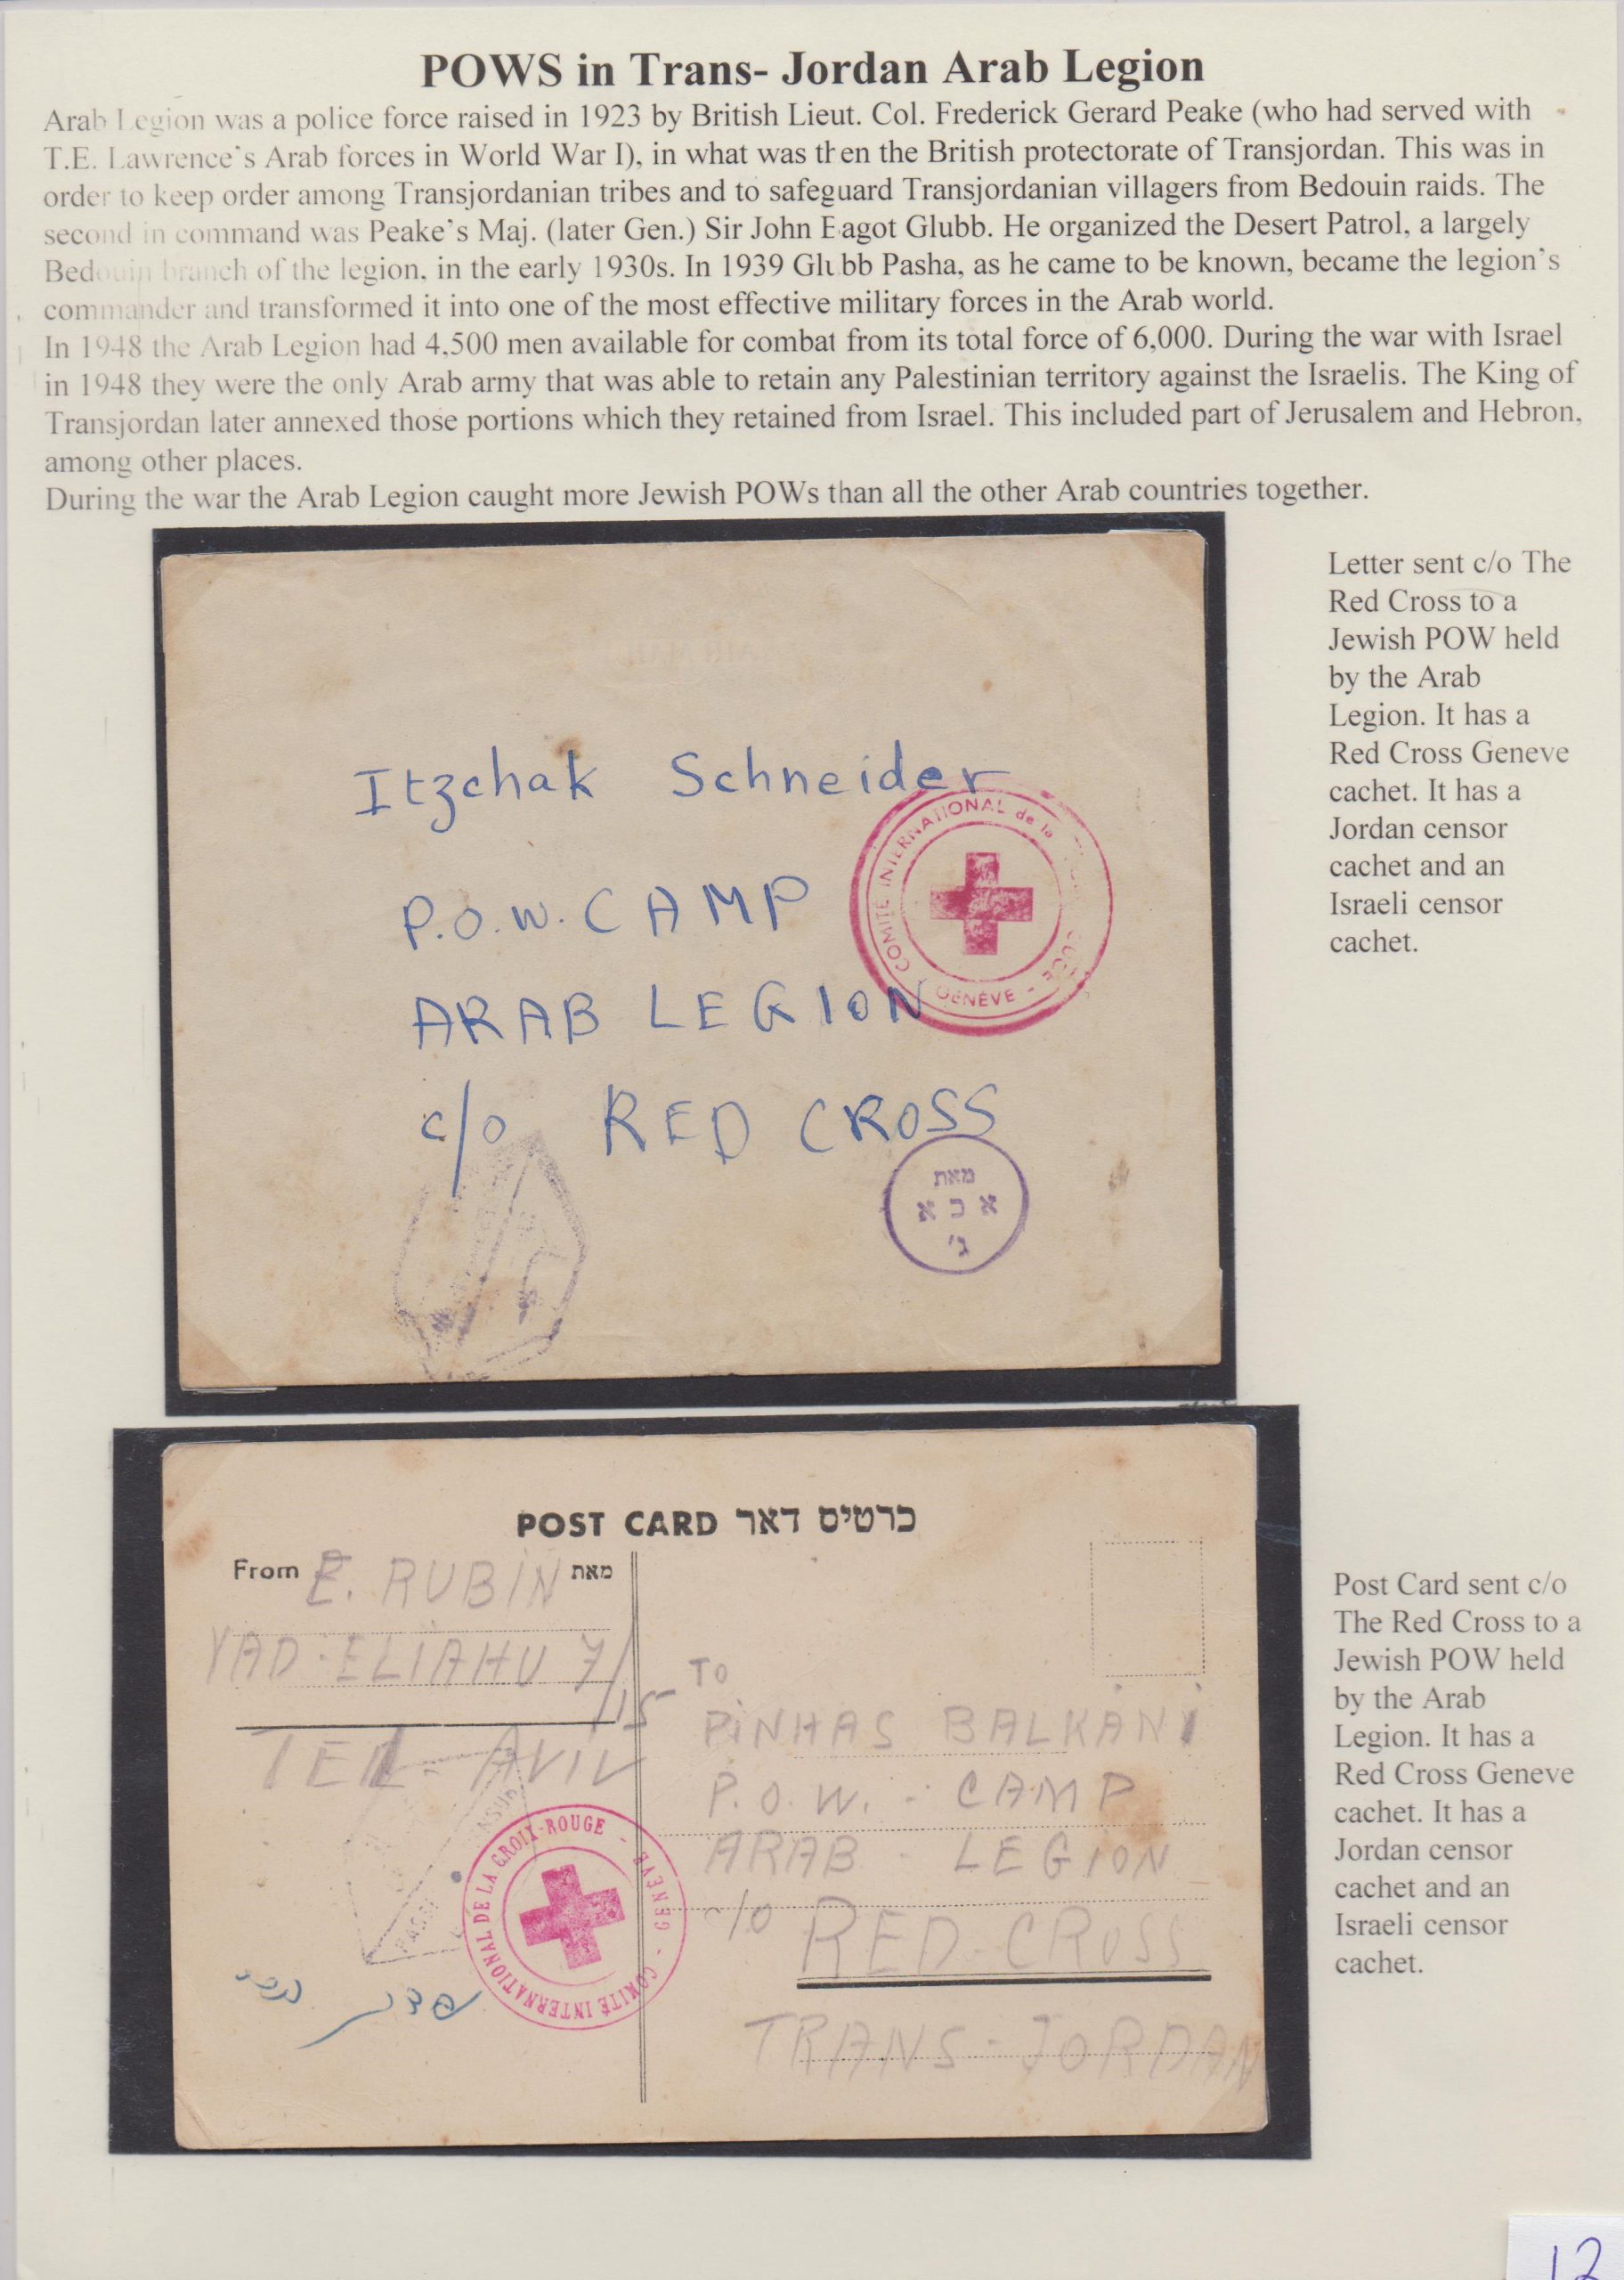 POWS in Trans- Jordan Arab Legion
Arab Legion was a police force raised in 1923 by British Lieut. Col. Frederick Gerard Peake (who had served with
T.E. Lawrence's Arab forces in World War I), in what was then the British protectorate of Transjordan. This was in
order to keep order among Transjordanian tribes and to safeguard Transjordanian villagers from Bedouin raids. The
second in command was Peake's Maj. (later Gen.) Sir John Bagot Glubb. He organized the Desert Patrol, a largely
Bedouin branch of the legion, in the early 1930s. In 1939 Glubb Pasha, as he came to be known, became the legion's
commander and transformed it into one of the most effective military forces in the Arab world.
In 1948 the Arab Legion had 4,500 men available for combat from its total force of 6,000. During the war with Israel
in 1948 they were the only Arab army that was able to retain any Palestinian territory against the Israelis. The King of
Transjordan later annexed those portions which they retained from Israel. This included part of Jerusalem and Hebron,
among other places.
During the war the Arab Legion caught more Jewish POWs than all the other Arab countries together.
Letter sent c/o The
Red Cross to a
Jewish POW held
by the Arab
Legion. It has a
Red Cross Geneve
cachet. It has a
Jordan censor
cachet and an
Israeli censor
cachet.
Itzchak Schneider
P.O.W. CAMP
ARAB LEGION
c/o RED CROSS
COMITÉ INTERNATIONAL de la
GENÈVE -
מאת
א כ א
ג'
POST CARD כרטיס דאר
From E. RUBIN מאת
YAD-ELIAHU 7/
115
TEL-AVIV
COMITÉ INTERNATIONAL DE LA CROIX-ROUGE - GENÈVE -
TO
PINHAS BALKANI
P.O.W. - CAMP
ARAB - LEGION
c/o RED-CROSS
TRANS-JORDAN
Post Card sent c/o
The Red Cross to a
Jewish POW held
by the Arab
Legion. It has a
Red Cross Geneve
cachet. It has a
Jordan censor
cachet and an
Israeli censor
cachet.
12